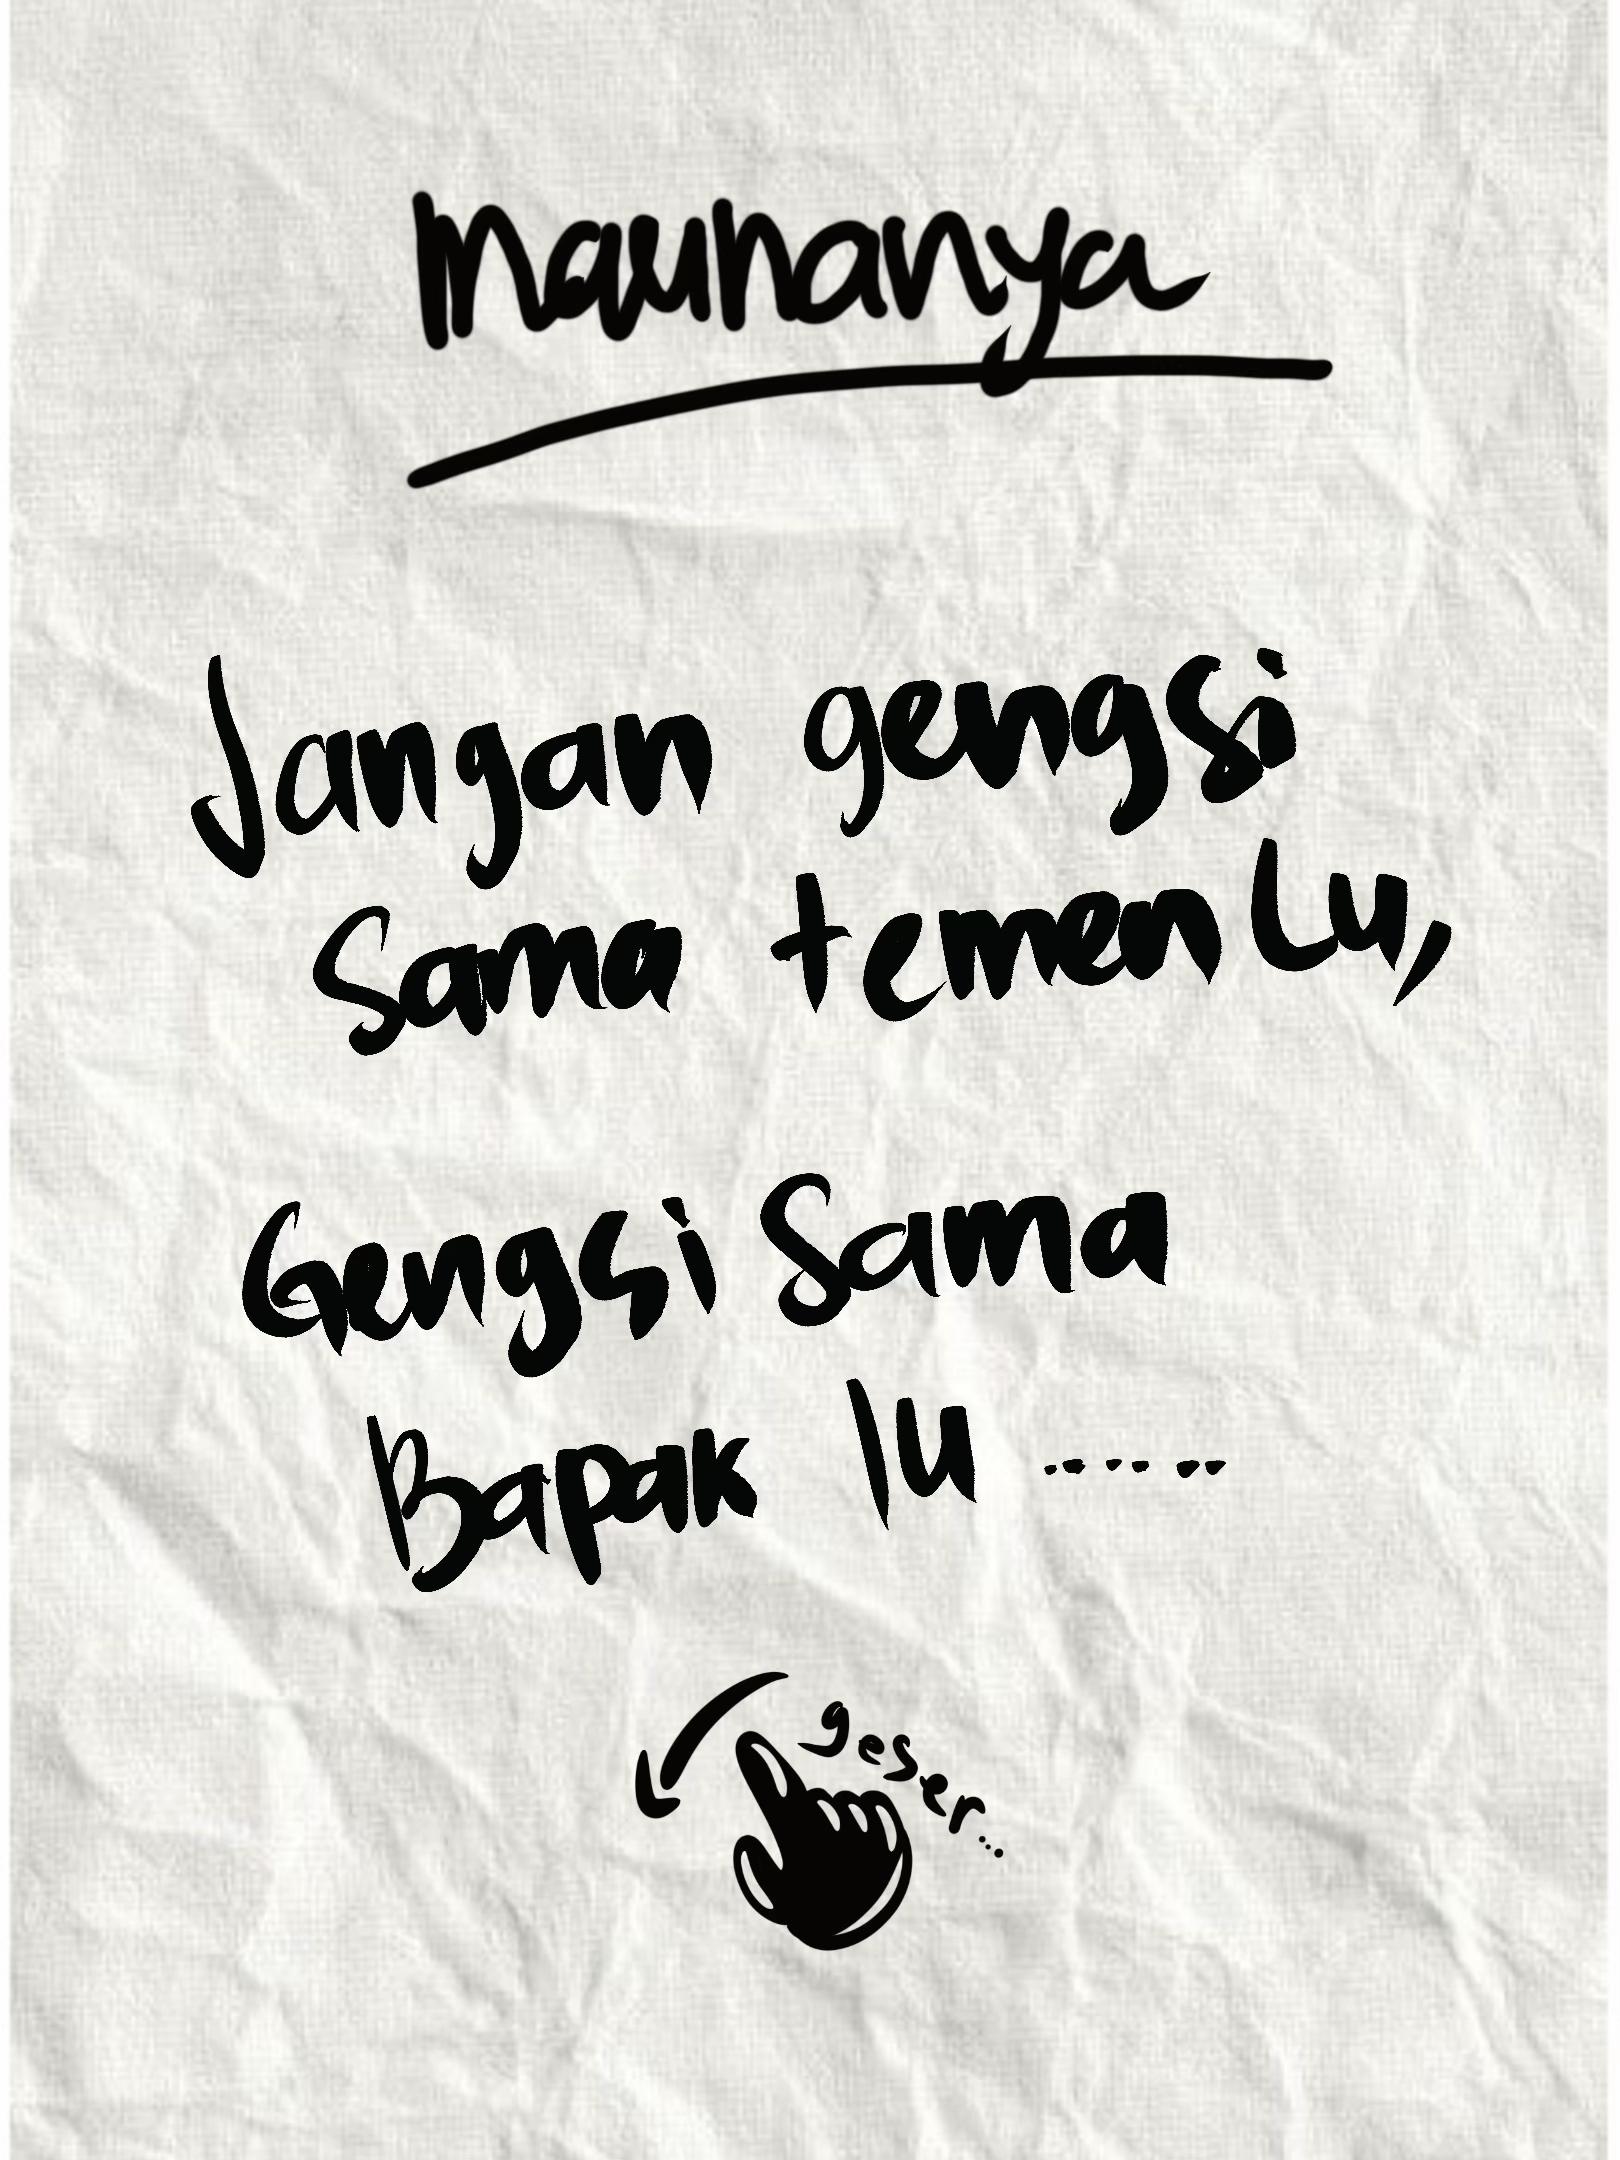 maunanya
Jangan gengsi
Sama temen Lu,
Gengsi Sama
Bapak lu ......
geser...